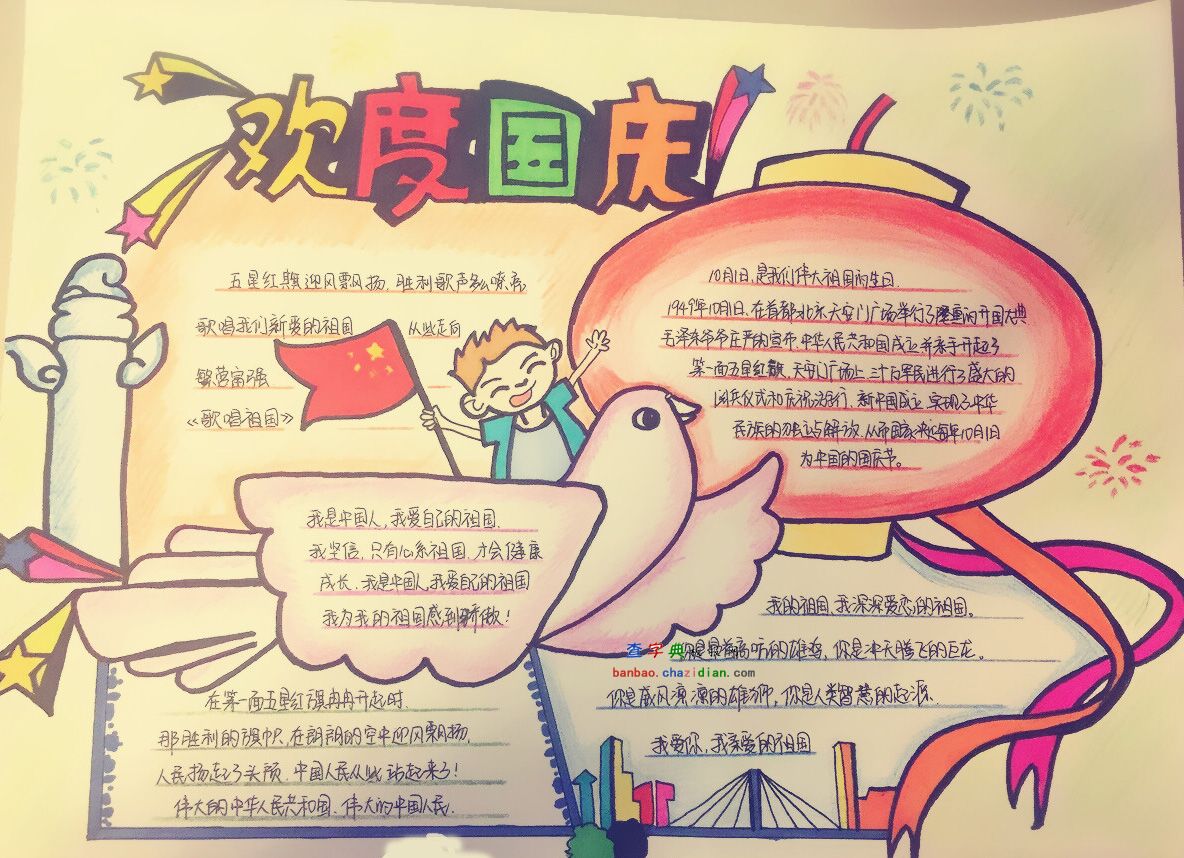 欢度国庆
五星红旗迎风飘扬,胜利歌声多么嘹亮
歌唱我们亲爱的祖国 从此走向
繁荣富强
《歌唱祖国》
10月1日,是我们伟大祖国的生日.
1949年10月1日,在首都北京天安门广场举行了隆重的开国大典
毛泽东爷爷庄严的宣布,中华人民共和国成立,并亲手升起了
第一面五星红旗、天安门广场上,三十万军民进行了盛大的
阅兵仪式和庆祝游行、新中国成立,实现了中华
民族的独立与解放,从而国家决定每年10月1日
为中国的国庆节。
我是中国人,我爱自己的祖国.
我坚信,只有心系祖国,才会健康
成长、我是中国人,我爱自己的祖国
我为我的祖国感到骄傲!
我的祖国,我深深爱恋的祖国。
你是 高昂的雄鸡、你是冲天腾飞的巨龙。
你是威风凛凛的雄狮,你是人类智慧的起源.
我爱你,我亲爱的祖国
查字典
banbao.chazidian.com
在第一面五星红旗冉冉升起时.
那胜利的旗帜,在朗朗的空中迎风飘扬.
人民扬起了头颅.中国人民从此站起来了!
伟大的中华人民共和国、伟大的中国人民.